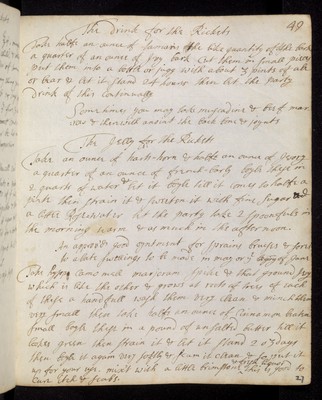 The Drink for the Rickets
49
Take halfe an ounce of the like quantity of
a quarter of an ounce of Ivy bark Cut them in small pieces
put them into a bottle or jugg with about 3 pints of ale
or bear & let it stand 24 hours then let the party
drink of this Continually
Sometimes you may take & beef mar
row & anoint the back bone & joynts
The Jelly for the Rickets
Take an ounce of harts-horn & halfe an ounce of Ivory
a quarter of an ounce of french-barly boyle these in
2 quarts of water & let it boyle till it comes to halfe a
pinte then strain it & sweeten it with fine Sugar and
a little Rosewater let the party take 2 spoonefuls in
the morning warm & as much in the afternoon.
An approv'd good oyntment for sprains bruises & sores
to abate swellings to be made in may or
Take Camomell marjorum & that ground Ivy
which is like the other & grows at roots of trees of each
of these a handfull wash them very clean & mince them
very small then take halfe an ounce of Cinnamon beaten
small boyle these in a pound of unsalted butter till it
lookes green then strain it & let it stand 2 or 3 days
then boyle it again very softly & scum it clean & so put it
up for your use. mix't with a little brimstone this is good to
Cure itch & scabs.
27